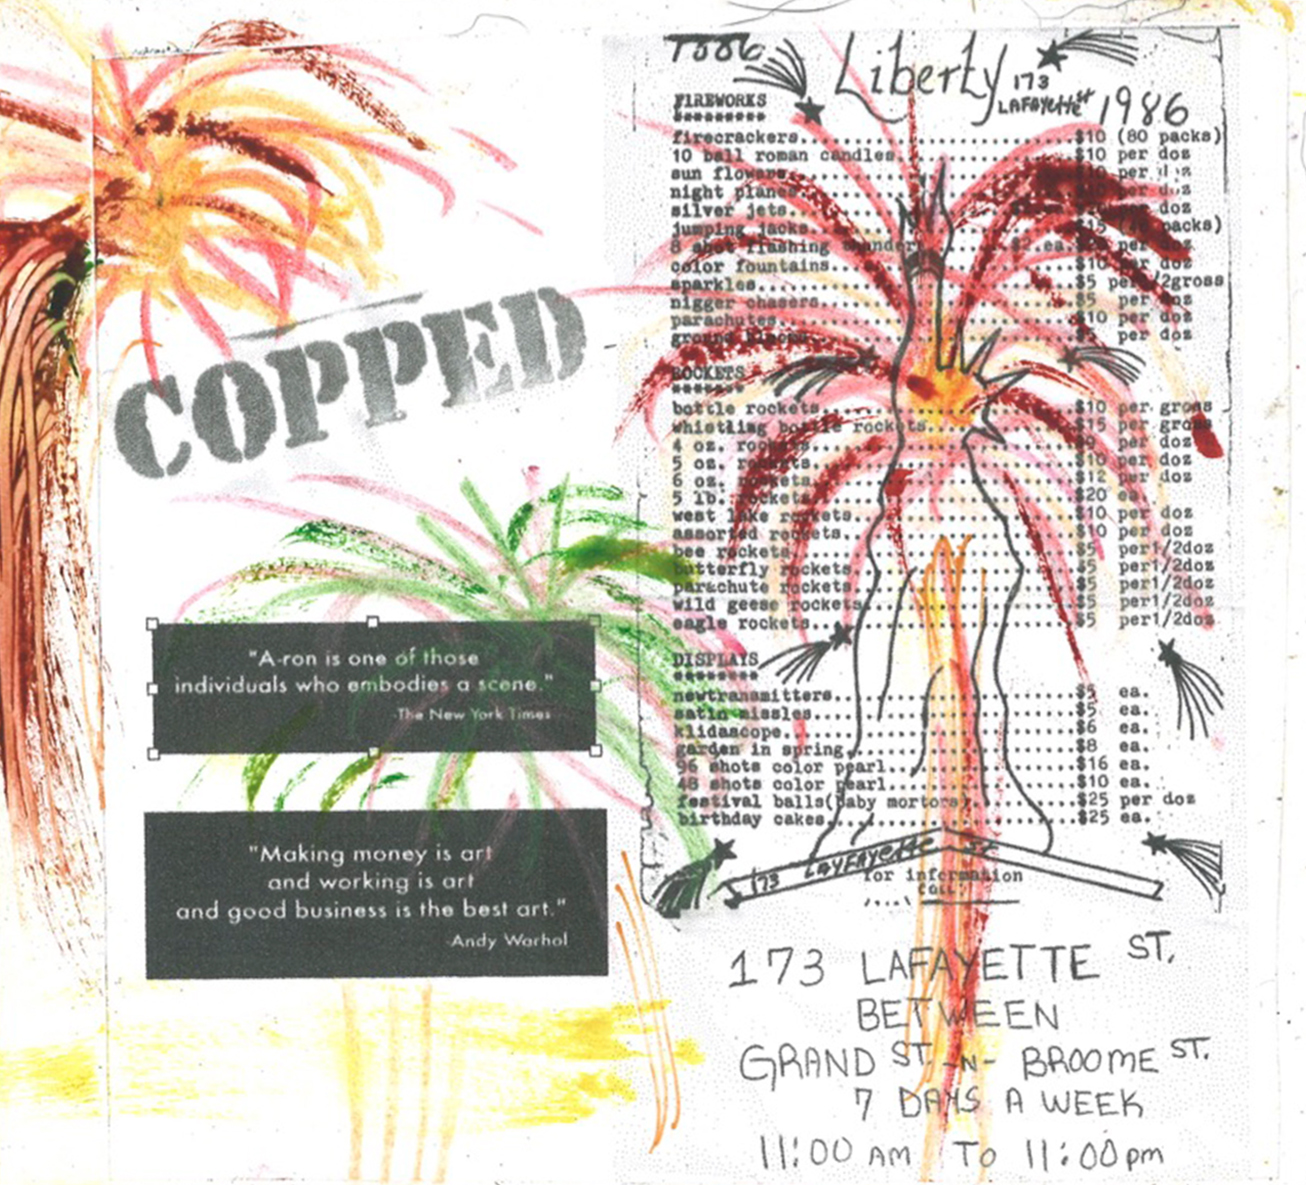 COPPED
"A-ron is one of those
individuals who embodies a scene."
-The New York Times
"Making money is art
and working is art
and good business is the best art."
-Andy Warhol
1986
Liberty
173
LAFAYette St
1986
FIREWORKS
firecrackers $10 (80 packs)
10 ball roman candles $10 per doz
sun flowers $10 per doz
night planes $10 per doz
silver jets doz
jumping jacks $15 packs)
8 shot flashing thunder $2.ea. per doz
color fountains $10 per doz
sparkles $5 per 1/2gross
nigger chasers $5 per doz
parachutes $10 per doz
ground blooms per doz
ROCKETS
bottle rockets $10 per gross
whistling bottle rockets $15 per gross
4 oz. rockets per doz
5 oz. rockets $10 per doz
6 oz. rockets $12 per doz
5 lb. rockets $20 ea.
west lake rockets $10 per doz
assorted rockets $10 per doz
bee rockets $5 per1/2doz
butterfly rockets $5 per1/2doz
parachute rockets $5 per1/2doz
wild geese rockets $5 per1/2doz
eagle rockets $5 per1/2doz
DISPLAYS
newtransmitters $5 ea.
satin missles $5 ea.
klidascope $6 ea.
garden in spring $8 ea.
96 shots color pearl $16 ea.
48 shots color pearl $10 ea.
festival balls(baby mortors) $25 per doz
birthday cakes $25 ea.
173 LAYFAYette St
for information
call:
173 LAFAYETTE ST.
BETWEEN
GRAND ST. -N- BROOME ST.
7 DAYS A WEEK
11:00 AM TO 11:00pm